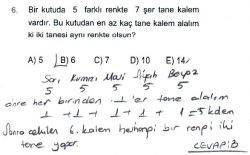 6. Bir kutuda 5 farklı renkte 7 şer tane kalem
vardır. Bu kutudan en az kaç tane kalem alalım
ki iki tanesi aynı renkte olsun?
A) 5 B) 6 C) 7 D) 10 E) 14
Sarı Kırmızı Mavi Siyah Beyaz
5 5 5 5 5
önce her birinden 1'er tane alalım
1 + 1 + 1 + 1 + 1 = 5 kalem
Sonra çekilen 6. kalem herhangi bir rengi iki
tane yapar.
CEVAP: B